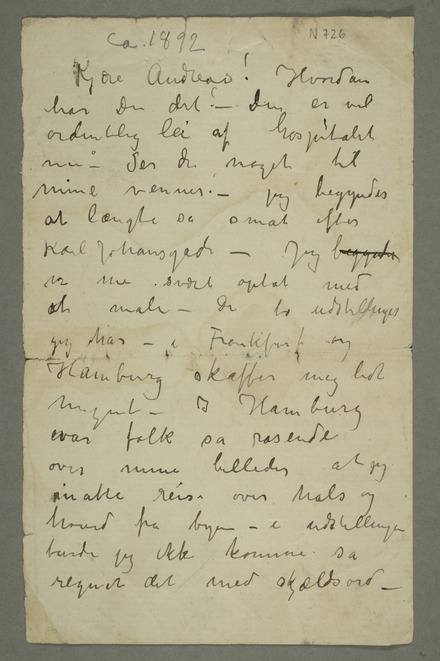 ca. 1892
N 726
Kjære Andreas! Hvordan
har Du det? – Du er vel
ordentlig lei af Hospitalet
nu – Ser du noget til
mine venner? – jeg begynder
at længte så småt efter
Karl Johansgade – Jeg
er nu svært optat med
at male – De to udstillinger
jeg har – i Frankfurt og
Hamburg skaffer meg lidt
– I Hamburg
var folk så rasende
over mine billeder at jeg
måtte reise over hals og
hoved fra byen – i udstillingen
turde jeg ikke komme så
regnet det med skjældsord –